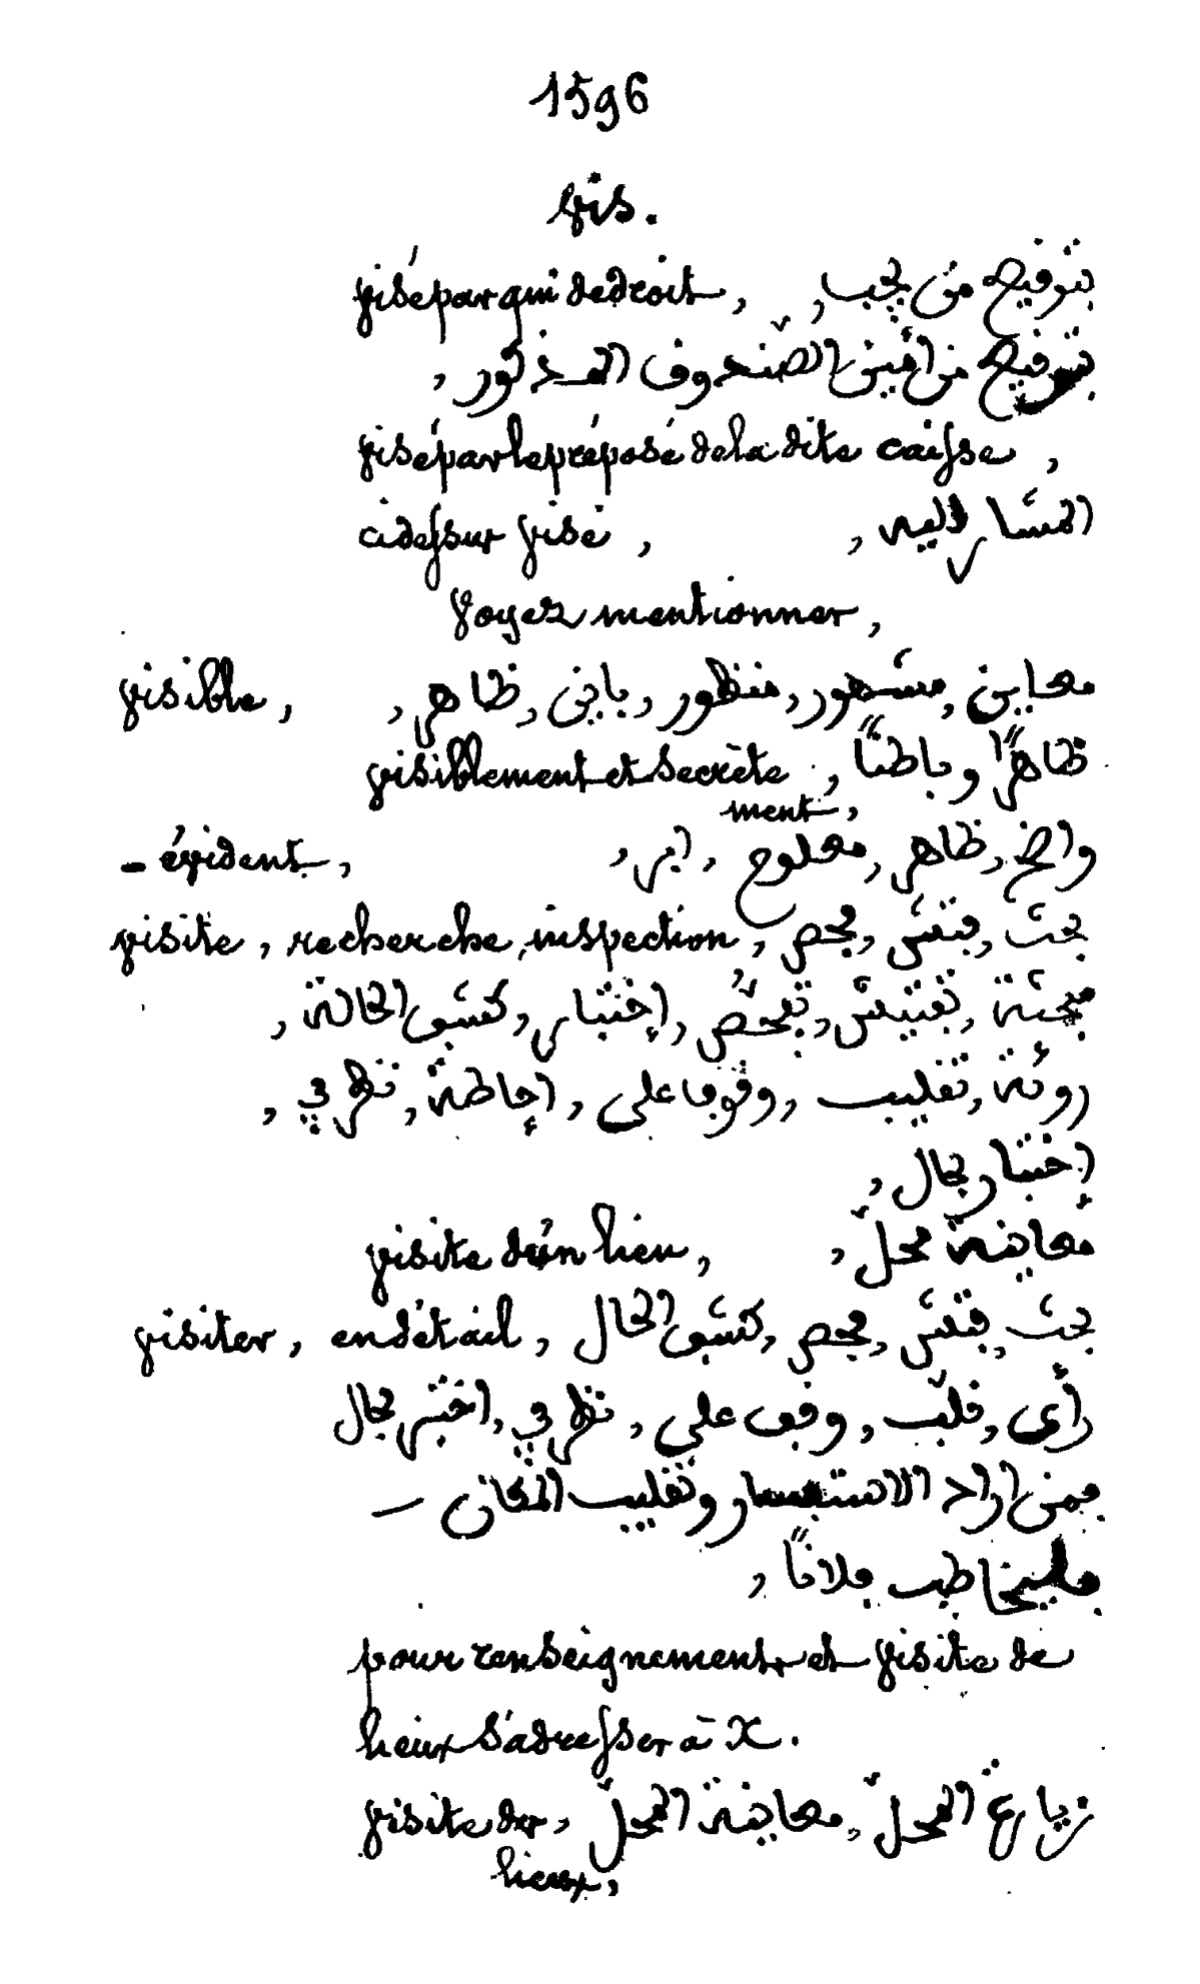 1596
vis.
visé par qui de droit, بتوقيع من يجب,
بتوقيع من أمين الصّندوق المذكور,
visé par le préposé de la dite caisse,
ci dessus visé, المشار إليه,
voyez mentionner,
visible, معاين, مشهور, منظور, باين, ظاهر,
visiblement et secrète ظاهرًا وباطنًا,
ment,
- évident, واضح, ظاهر, معلوم,
visite, recherche, inspection, بحث, فتش, فحص,
تفتيش, تفحّص, إختبار, كشف الحالة,
رؤية, تقليب, وقوف على, إحاطة, نظر في,
إختبار بحال,
visite d'un lieu, معاينة محلّ,
visiter, en détail, بحث, فتّش, فحص, كشف الحال
رأى, قلّب, وقف على, نظر في, اختبر بحال
فمن اراد الاستفسار وتقليب المكان —
فليخاطب فلانًا,
pour renseignement et visite de
lieux s'adresser à X.
visite des زيارة المحلّ, معاينة المحلّ,
lieux,